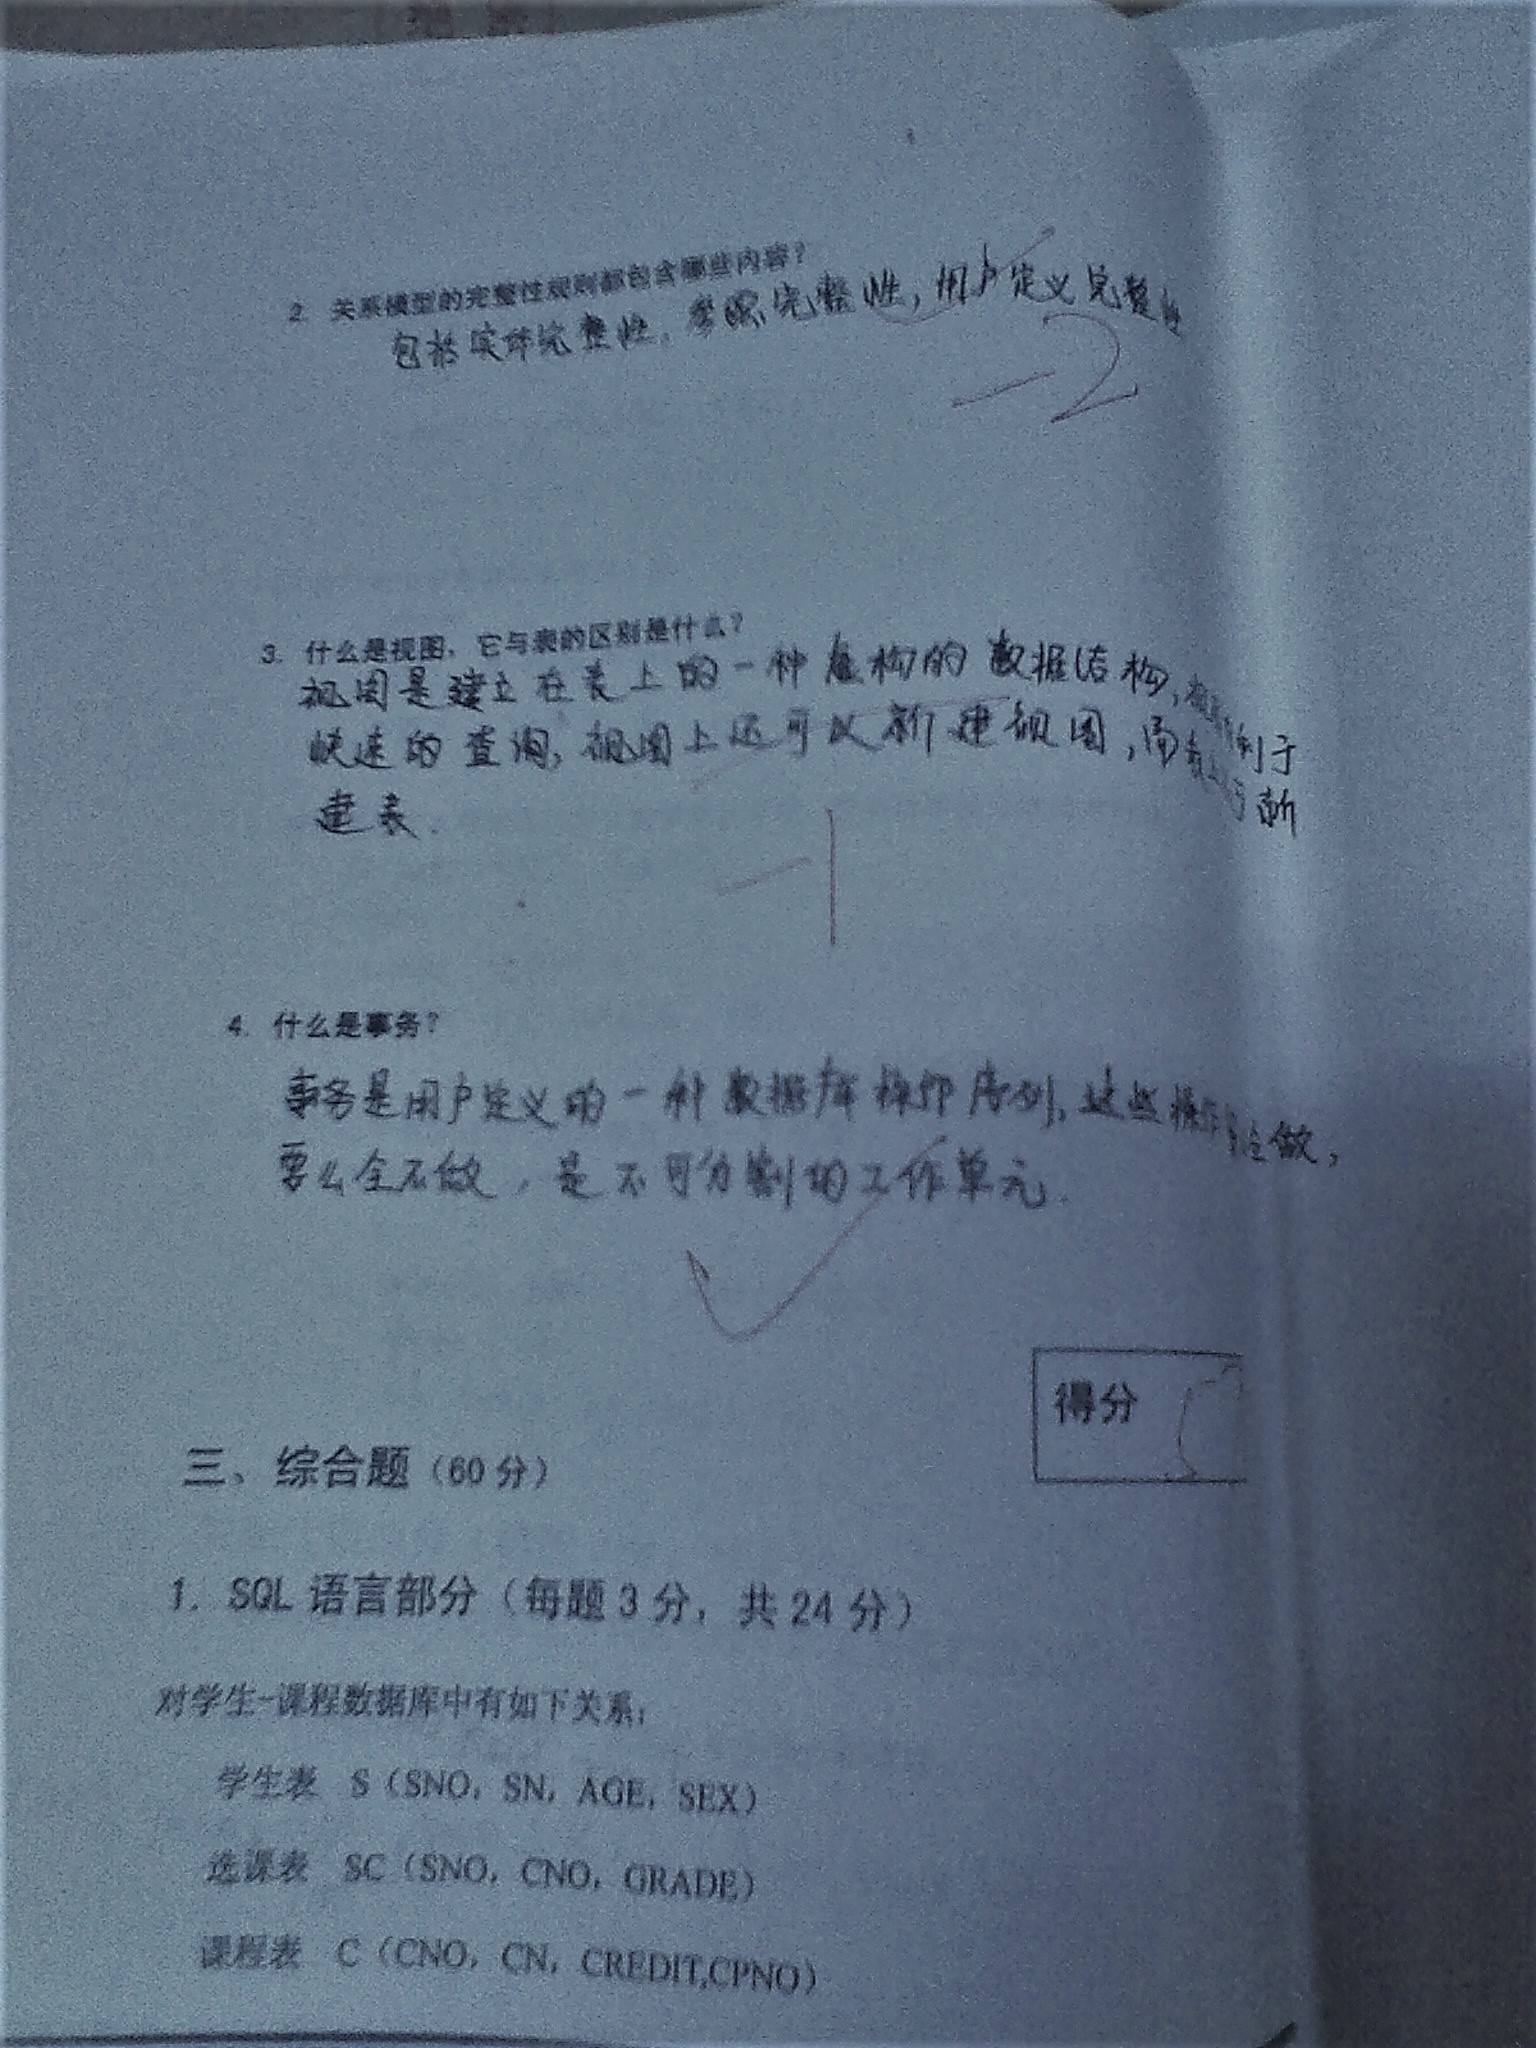 2. 关系模型的完整性规则都包含哪些内容?
包括实体完整性,参照完整性,用户定义完整性
-2
3. 什么是视图,它与表的区别是什么?
视图是建立在表上的一种虚构的数据结构,利于
快速的查询,视图上还可以新建视图,而表上新
建表.
-1
4. 什么是事务?
事务是用户定义的一种数据库操作序列,这些操作全做,
要么全不做,是不可分割的工作单元.
得分
三、综合题(60 分)
1. SQL 语言部分(每题 3 分,共 24 分)
对学生-课程数据库中有如下关系:
学生表 S(SNO, SN, AGE, SEX)
选课表 SC(SNO, CNO, GRADE)
课程表 C(CNO, CN, CREDIT,CPNO)